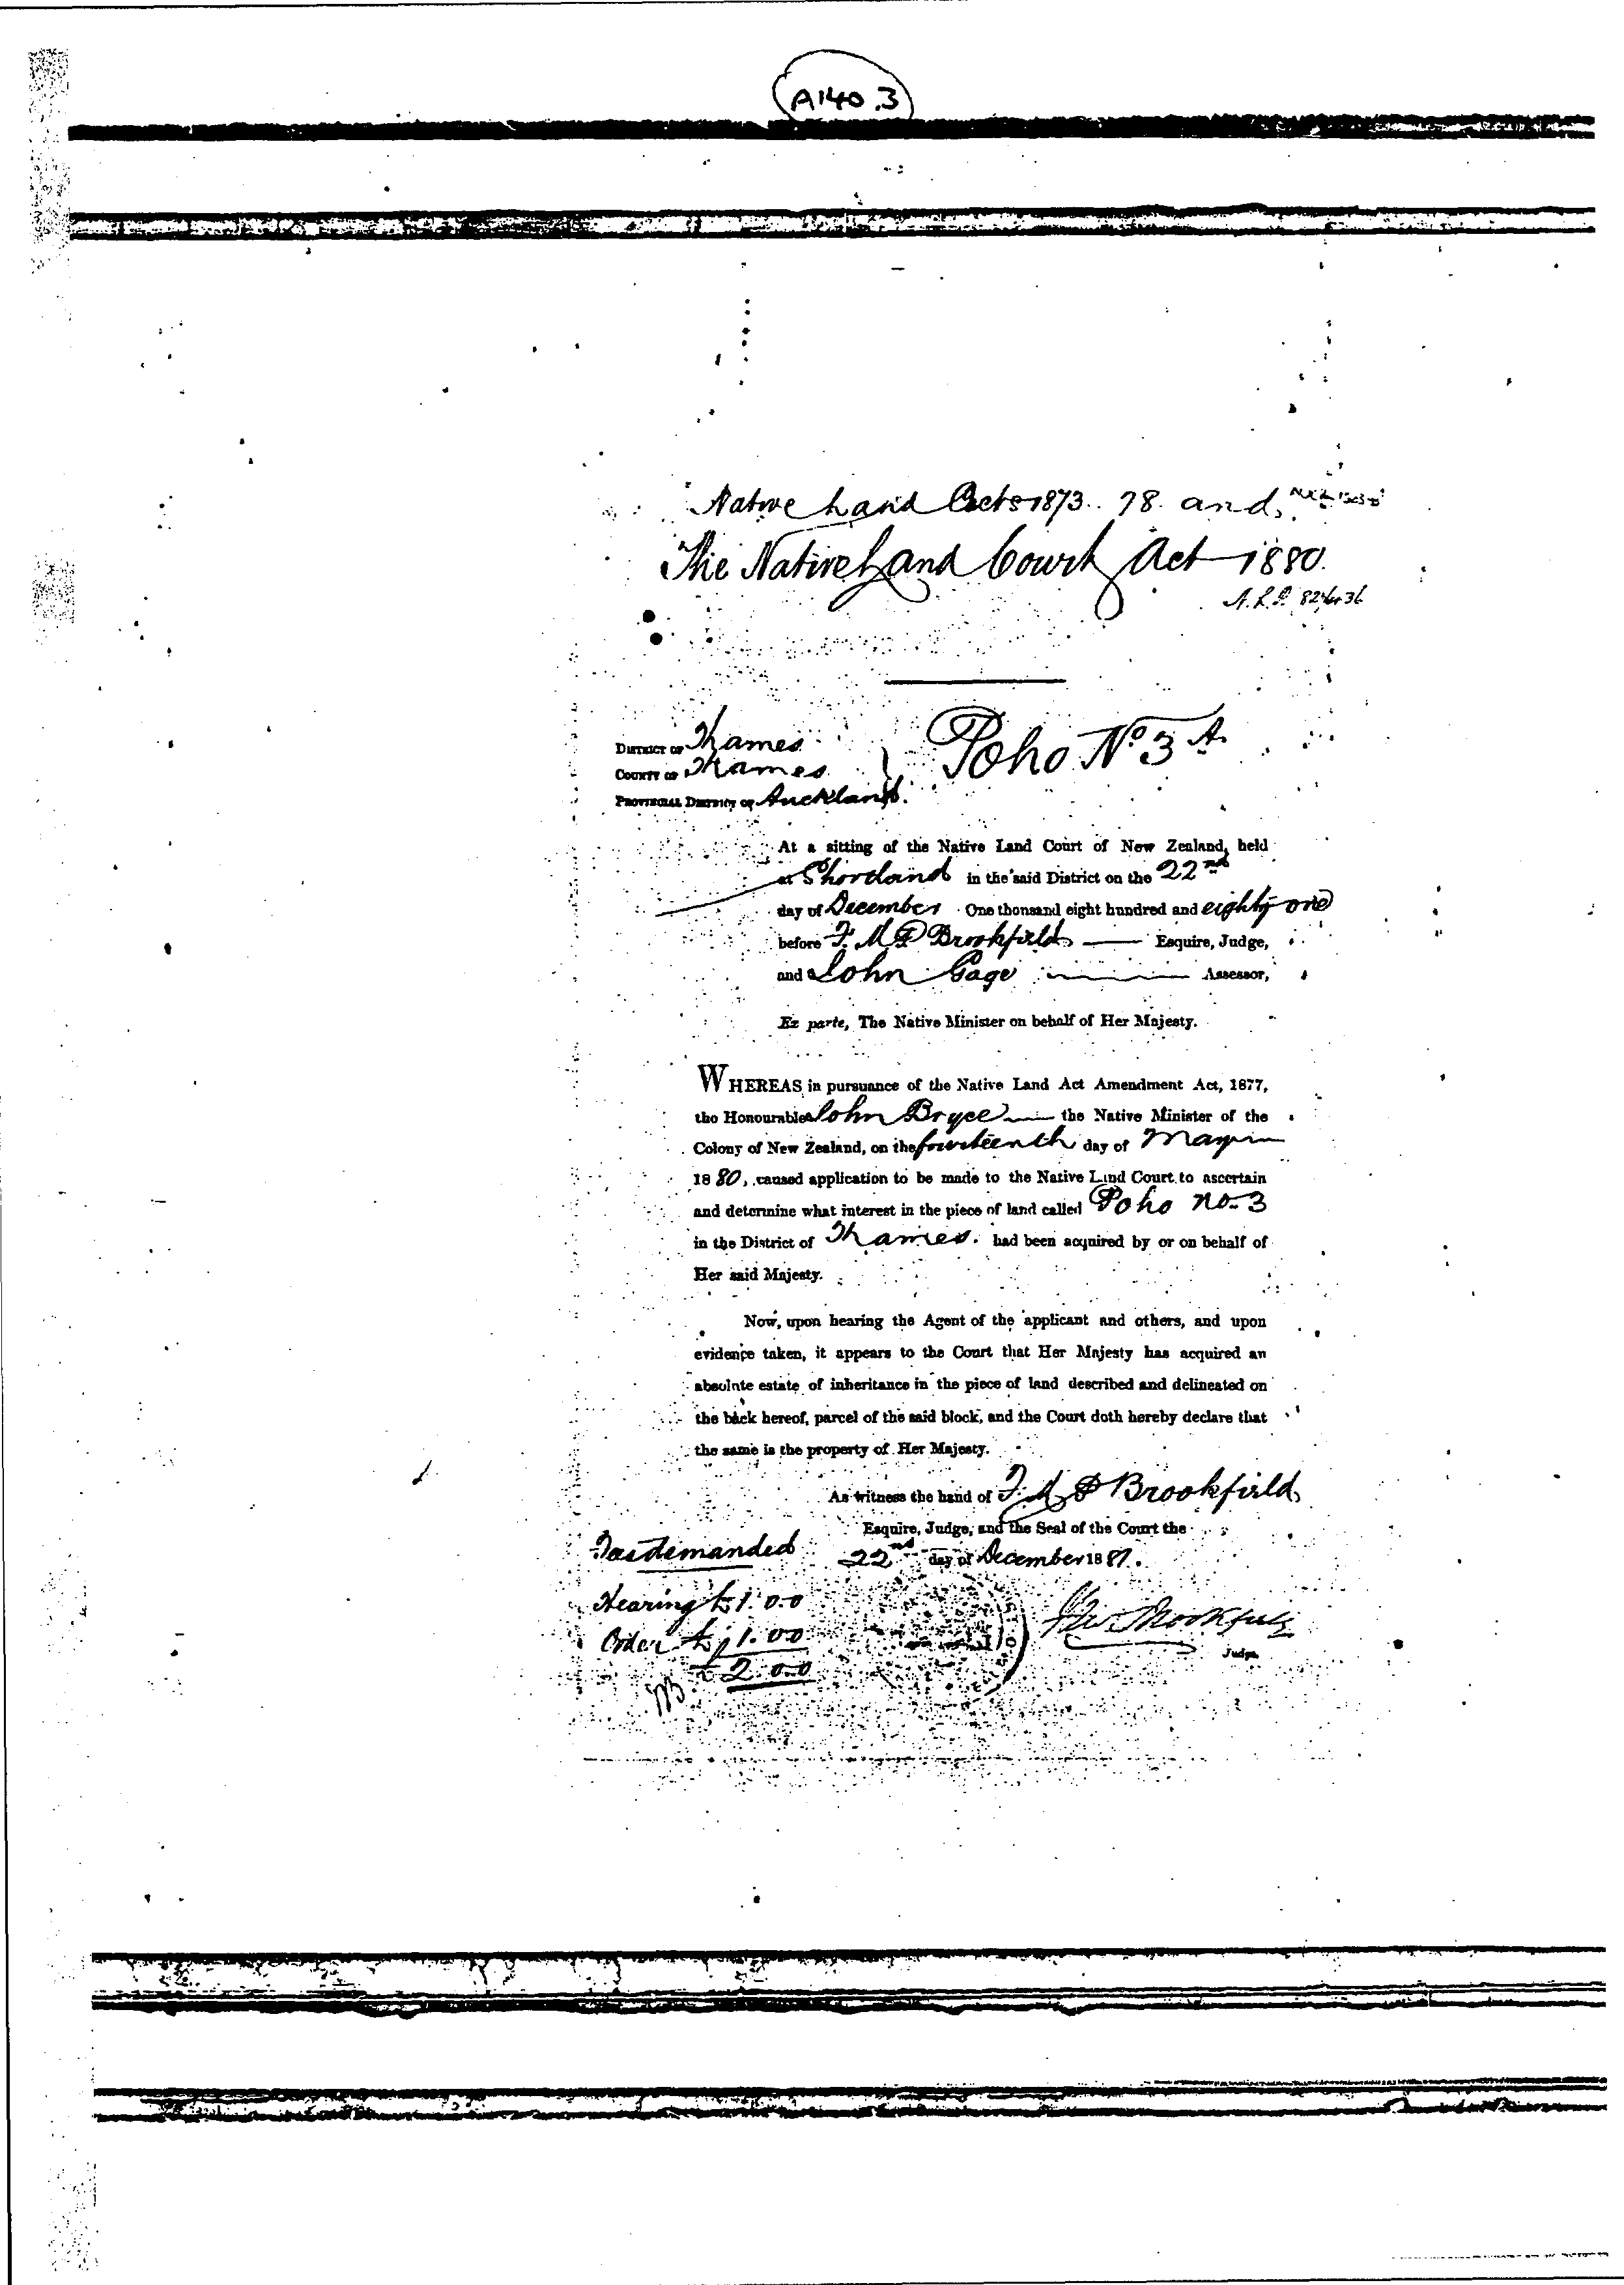 A140.3
Native Land Acts 1873.. 78. and
The Native Land Court Act 1880.
DISTRICT OF Thames
COUNTY OF Thames
PROVINCIAL DISTRICT OF Auckland.
Poho No 3 A.
At a sitting of the Native Land Court of New Zealand, held
at Shortland in the said District on the 22nd
day of December One thousand eight hundred and eighty one
before F. M. P Brookfield Esquire, Judge,
and John Gage Assessor,
Ex parte, The Native Minister on behalf of Her Majesty.
WHEREAS in pursuance of the Native Land Act Amendment Act, 1877,
the Honourable John Bryce the Native Minister of the
Colony of New Zealand, on the fourteenth day of May
1880, caused application to be made to the Native Land Court to ascertain
and determine what interest in the piece of land called Poho no. 3
in the District of Thames. had been acquired by or on behalf of
Her said Majesty.
Now, upon hearing the Agent of the applicant and others, and upon
evidence taken, it appears to the Court that Her Majesty has acquired an
absolute estate of inheritance in the piece of land described and delineated on
the back hereof, parcel of the said block, and the Court doth hereby declare that
the same is the property of Her Majesty.
As witness the hand of F. M P Brookfield
Esquire, Judge, and the Seal of the Court the
22nd day of December 1881.
demanded
Hearing £1.0.0
Order £1.0.0
£2.0.0
Brookfield
Judge.